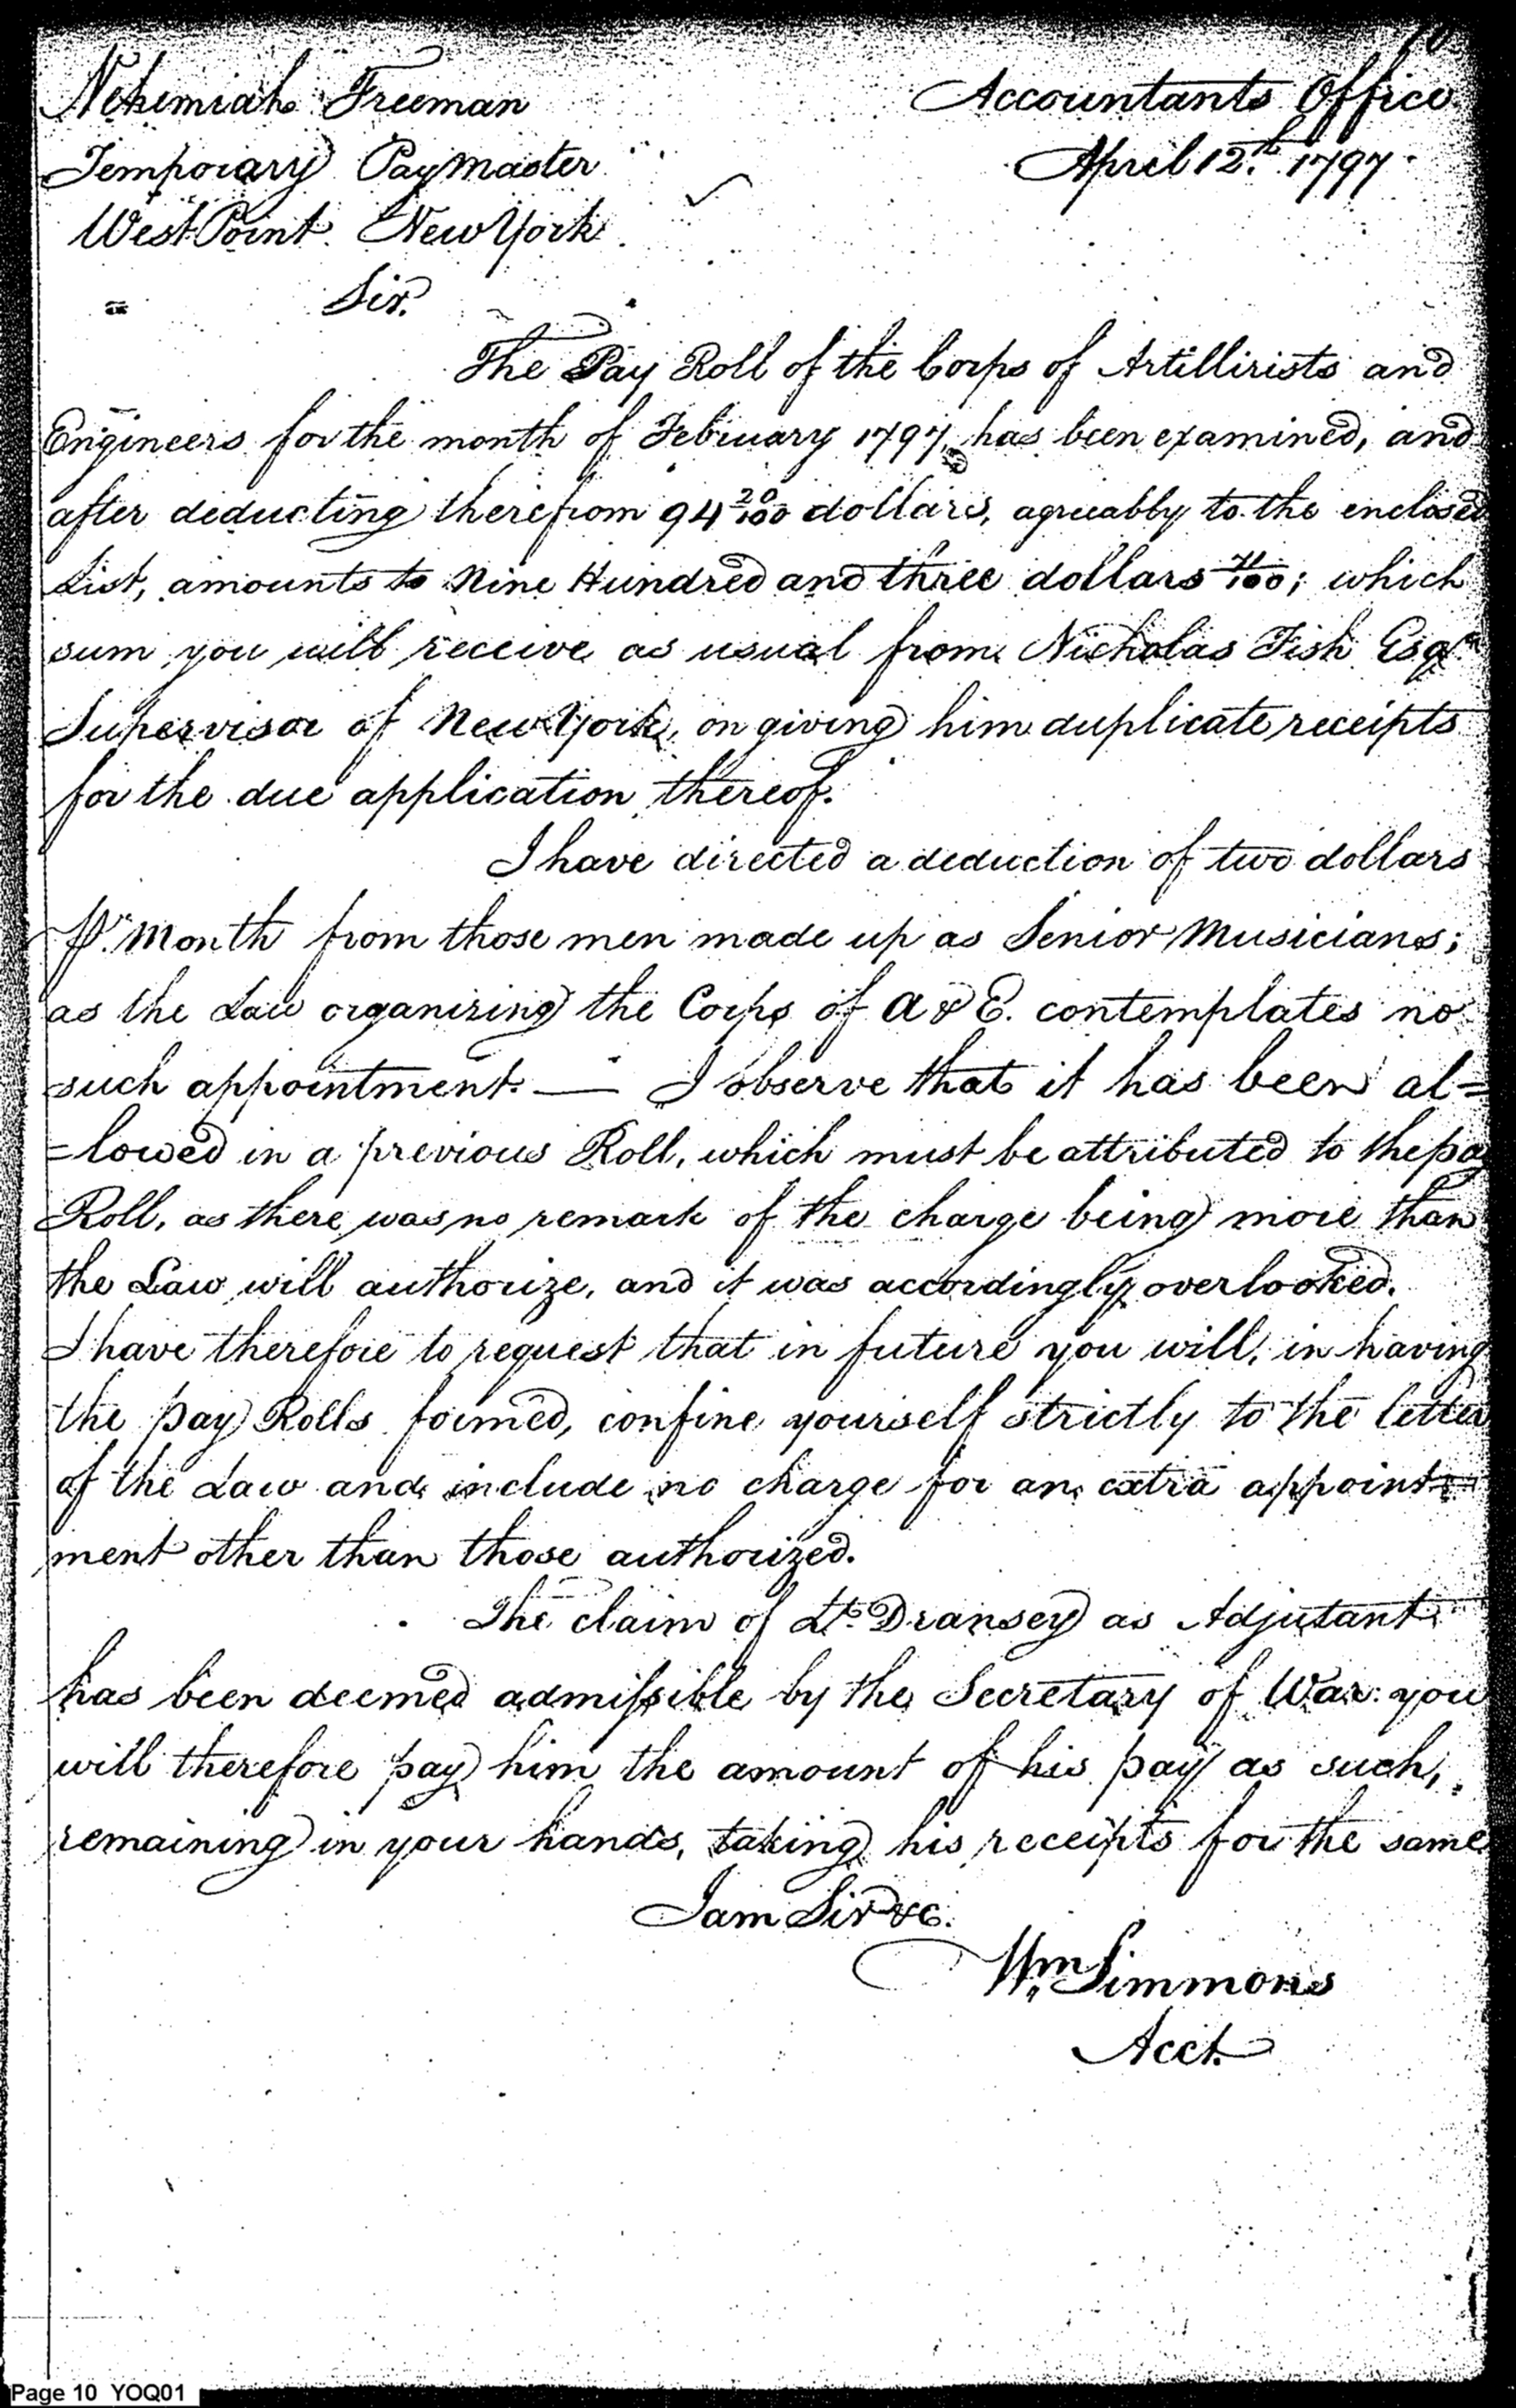 10
Nehemiah Freeman
Accountants Office
Temporary PayMaster
April 12th. 1797.
West Point. New York
Sir.
The Pay Roll of the Corps of Artillirists and
Engineers for the month of February 1797, has been examined, and
after deducting therefrom 94 20/100 dollars, agreeably to the enclosed
List, amounts to Nine Hundred and three dollars /100; which
sum you will receive as usual from Nicholas Fish Esqr.
Supervisor of New York, on giving him duplicate receipts
for the due application thereof.
I have directed a deduction of two dollars
Pr. Month from those men made up as Senior Musicians;
as the Law organizing the Corps of A & E. contemplates no
such appointment. — I observe that it has been al=
=lowed in a previous Roll, which must be attributed to the pay
Roll, as there was no remark of the charge being more than
the Law will authorize, and it was accordingly overlooked.
I have therefore to request that in future you will, in having
the pay Rolls formed, confine yourself strictly to the letter
of the Law and include no charge for an extra appoint=
ment other than those authorized.
The claim of Lt. Dransey as Adjutant
has been deemed admissible by the Secretary of War: you
will therefore pay him the amount of his pay as such,
remaining in your hands, taking his receipts for the same
I am Sir &c.
Wm Simmons
Acct.
Page 10 YOQ01